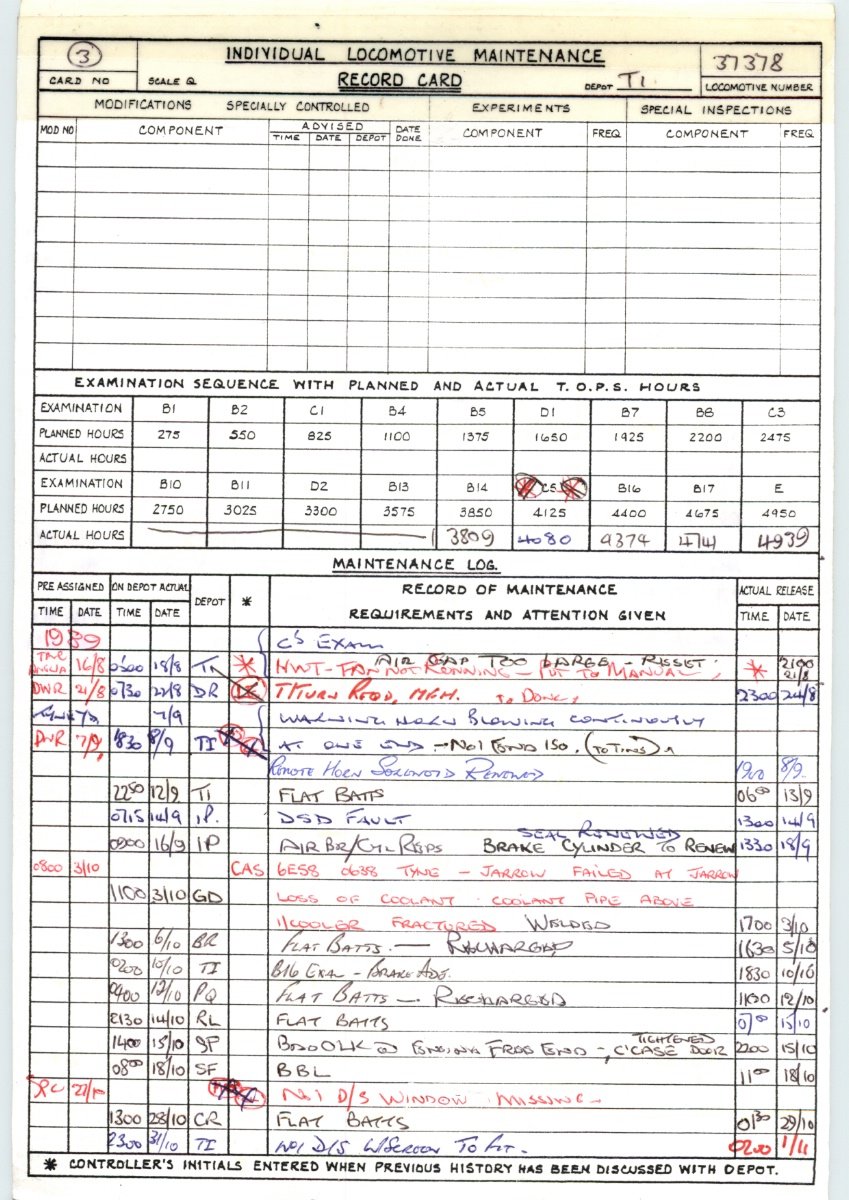 3 INDIVIDUAL LOCOMOTIVE MAINTENANCE 37378
CARD NO SCALE Q RECORD CARD DEPOT TI LOCOMOTIVE NUMBER
MODIFICATIONS SPECIALLY CONTROLLED EXPERIMENTS SPECIAL INSPECTIONS
MOD NO COMPONENT ADVISED DATE DONE COMPONENT FREQ COMPONENT FREQ
TIME DATE DEPOT
EXAMINATION SEQUENCE WITH PLANNED AND ACTUAL T.O.P.S. HOURS
EXAMINATION B1 B2 C1 B4 B5 D1 B7 B8 C3
PLANNED HOURS 275 550 825 1100 1375 1650 1925 2200 2475
ACTUAL HOURS
EXAMINATION B10 B11 D2 B13 B14 C5 B16 B17 E
PLANNED HOURS 2750 3025 3300 3575 3850 4125 4400 4675 4950
ACTUAL HOURS 3809 4080 4374 4741 4939
MAINTENANCE LOG.
PRE ASSIGNED ON DEPOT ACTUAL DEPOT * RECORD OF MAINTENANCE ACTUAL RELEASE
TIME DATE TIME DATE REQUIREMENTS AND ATTENTION GIVEN TIME DATE
1989 C5 EXAM
AIR GAP TOO LARGE - RESET. 2100
16/8 0500 18/8 * HWT - FAN NOT RUNNING - PUT TO MANUAL, * 21/8
DWR 21/8 0730 22/8 DR T/TURN REQD, 2300 24/8
7/9 WARNING HORN BLOWING CONTINUOUSLY
7/9 1830 8/9 TI AT ONE END - No1 END ISO.
REMOTE HORN SOLENOID RENEWED 1900 8/9
2250 12/9 TI FLAT BATTS 0600 13/9
0715 14/9 IP. DSD FAULT 1300 14/9
SEAL RENEWED
0900 16/9 IP AIR BR/CYL REPS BRAKE CYLINDER TO RENEW 1330 18/9
0800 3/10 CAS 6E58 0638 TYNE - JARROW FAILED AT JARROW
1100 3/10 GD LOSS OF COOLANT COOLANT PIPE ABOVE
I/COOLER FRACTURED WELDED 1700 3/10
1300 6/10 BR FLAT BATTS. - RECHARGED 1630 5/10
0200 10/10 TI B16 EXAM - BRAKE ADJ. 1830 10/10
0400 12/10 PQ FLAT BATTS - RECHARGED 1100 12/10
2130 14/10 RL FLAT BATTS 0700 15/10
TIGHTENED
1400 15/10 SF BAD O/LK @ ENGINE FREE END - C'CASE DOOR 2200 15/10
0800 18/10 SF BBL 1100 18/10
27/10 No1 D/S WINDOW MISSING -
1300 28/10 CR FLAT BATTS 0130 29/10
2300 31/10 TI No1 D/S W/SCREEN TO FIT. 0200 1/11
* CONTROLLER'S INITIALS ENTERED WHEN PREVIOUS HISTORY HAS BEEN DISCUSSED WITH DEPOT.